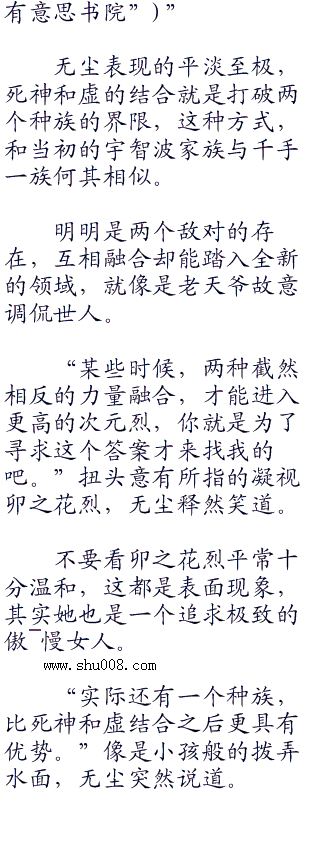 有意思书院”)”
无尘表现的平淡至极，
死神和虚的结合就是打破两
个种族的界限，这种方式，
和当初的宇智波家族与千手
一族何其相似。
明明是两个敌对的存
在，互相融合却能踏入全新
的领域，就像是老天爷故意
调侃世人。
“某些时候，两种截然
相反的力量融合，才能进入
更高的次元烈，你就是为了
寻求这个答案才来找我的
吧。”扭头意有所指的凝视
卯之花烈，无尘释然笑道。
不要看卯之花烈平常十
分温和，这都是表面现象，
其实她也是一个追求极致的
傲¯慢女人。
www.shu008.com
“实际还有一个种族，
比死神和虚结合之后更具有
优势。”像是小孩般的拨弄
水面，无尘突然说道。